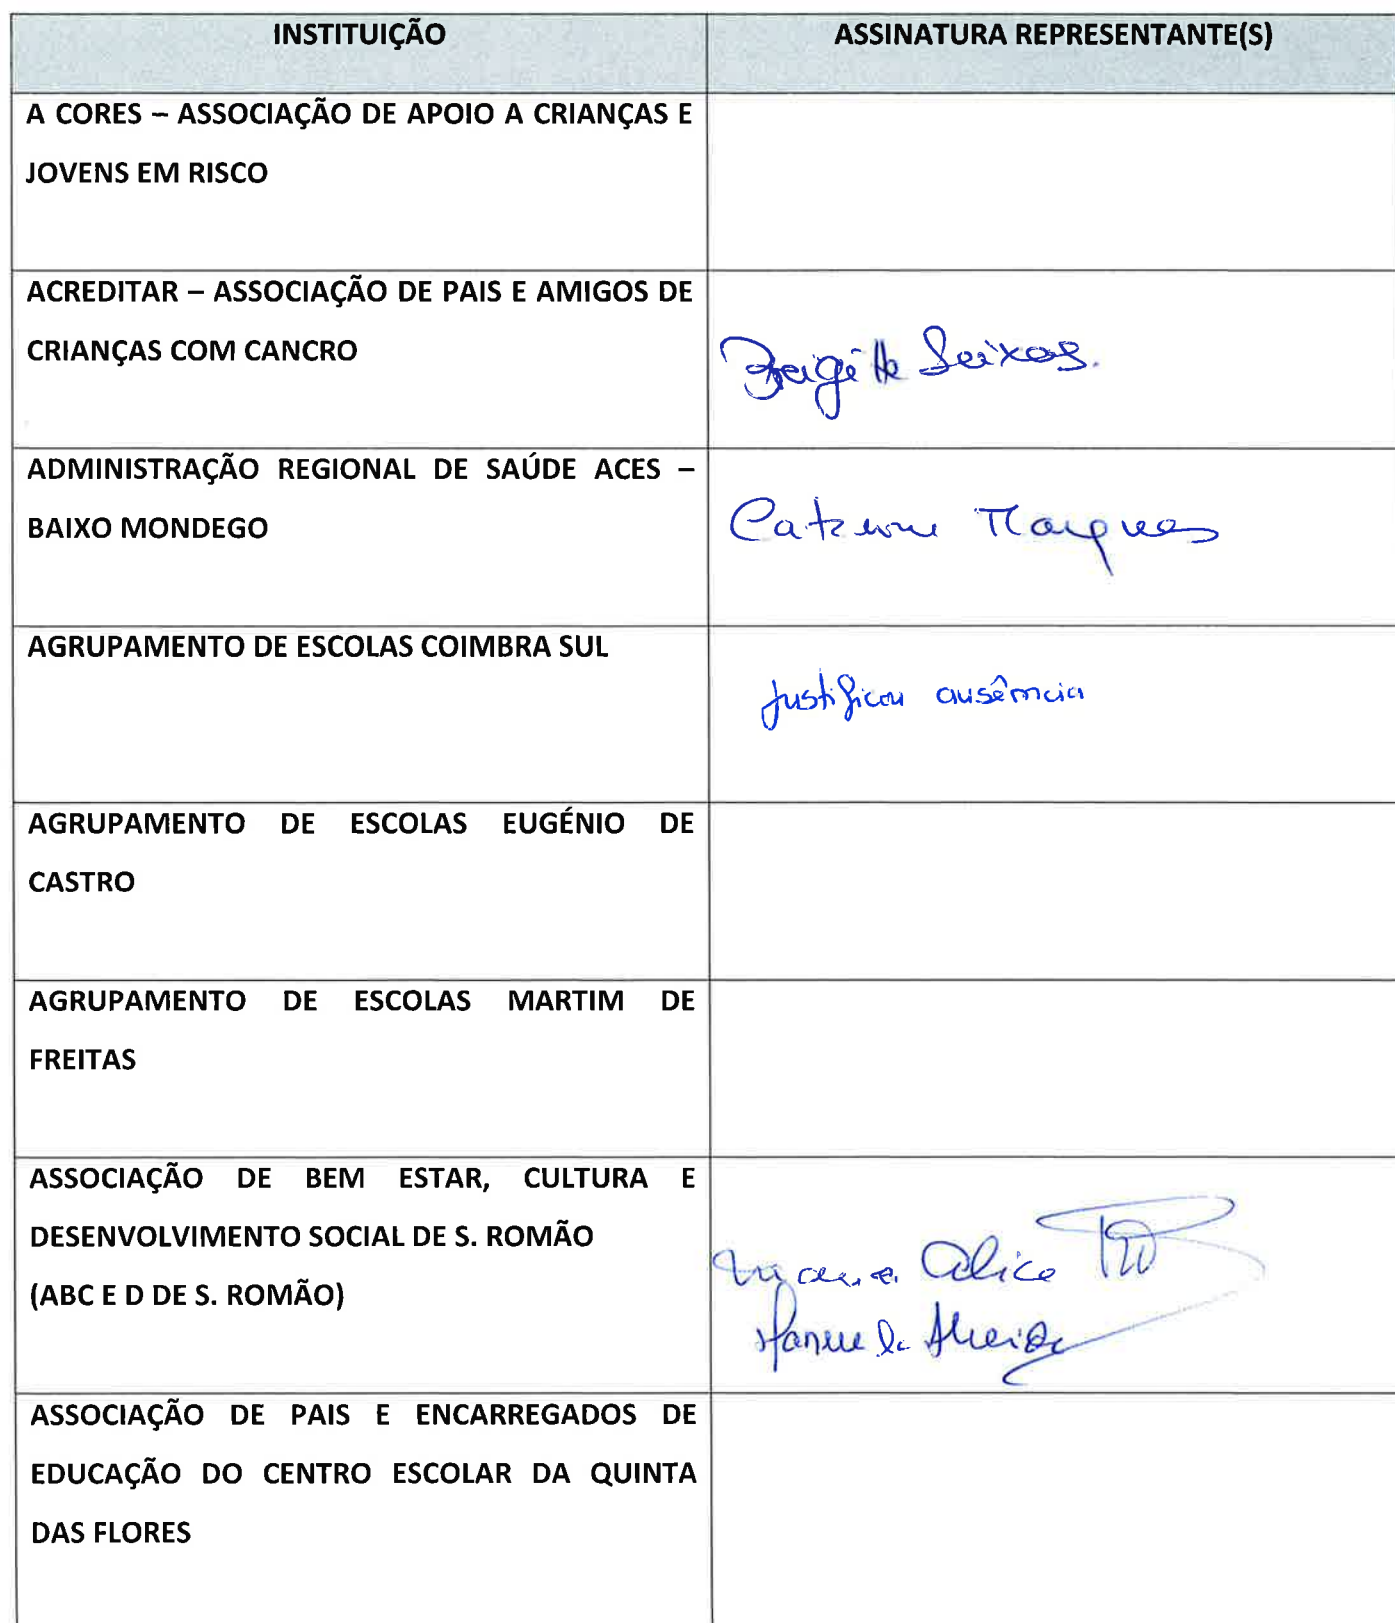 INSTITUIÇÃO
ASSINATURA REPRESENTANTE(S)
A CORES – ASSOCIAÇÃO DE APOIO A CRIANÇAS E
JOVENS EM RISCO
ACREDITAR – ASSOCIAÇÃO DE PAIS E AMIGOS DE
CRIANÇAS COM CANCRO
Brigitte Seixas.
ADMINISTRAÇÃO REGIONAL DE SAÚDE ACES –
BAIXO MONDEGO
Catarina Marques
AGRUPAMENTO DE ESCOLAS COIMBRA SUL
Justificou ausência
AGRUPAMENTO DE ESCOLAS EUGÉNIO DE
CASTRO
AGRUPAMENTO DE ESCOLAS MARTIM DE
FREITAS
ASSOCIAÇÃO DE BEM ESTAR, CULTURA E
DESENVOLVIMENTO SOCIAL DE S. ROMÃO
(ABC E D DE S. ROMÃO)
Maria Alice
Manuela Almeida
ASSOCIAÇÃO DE PAIS E ENCARREGADOS DE
EDUCAÇÃO DO CENTRO ESCOLAR DA QUINTA
DAS FLORES